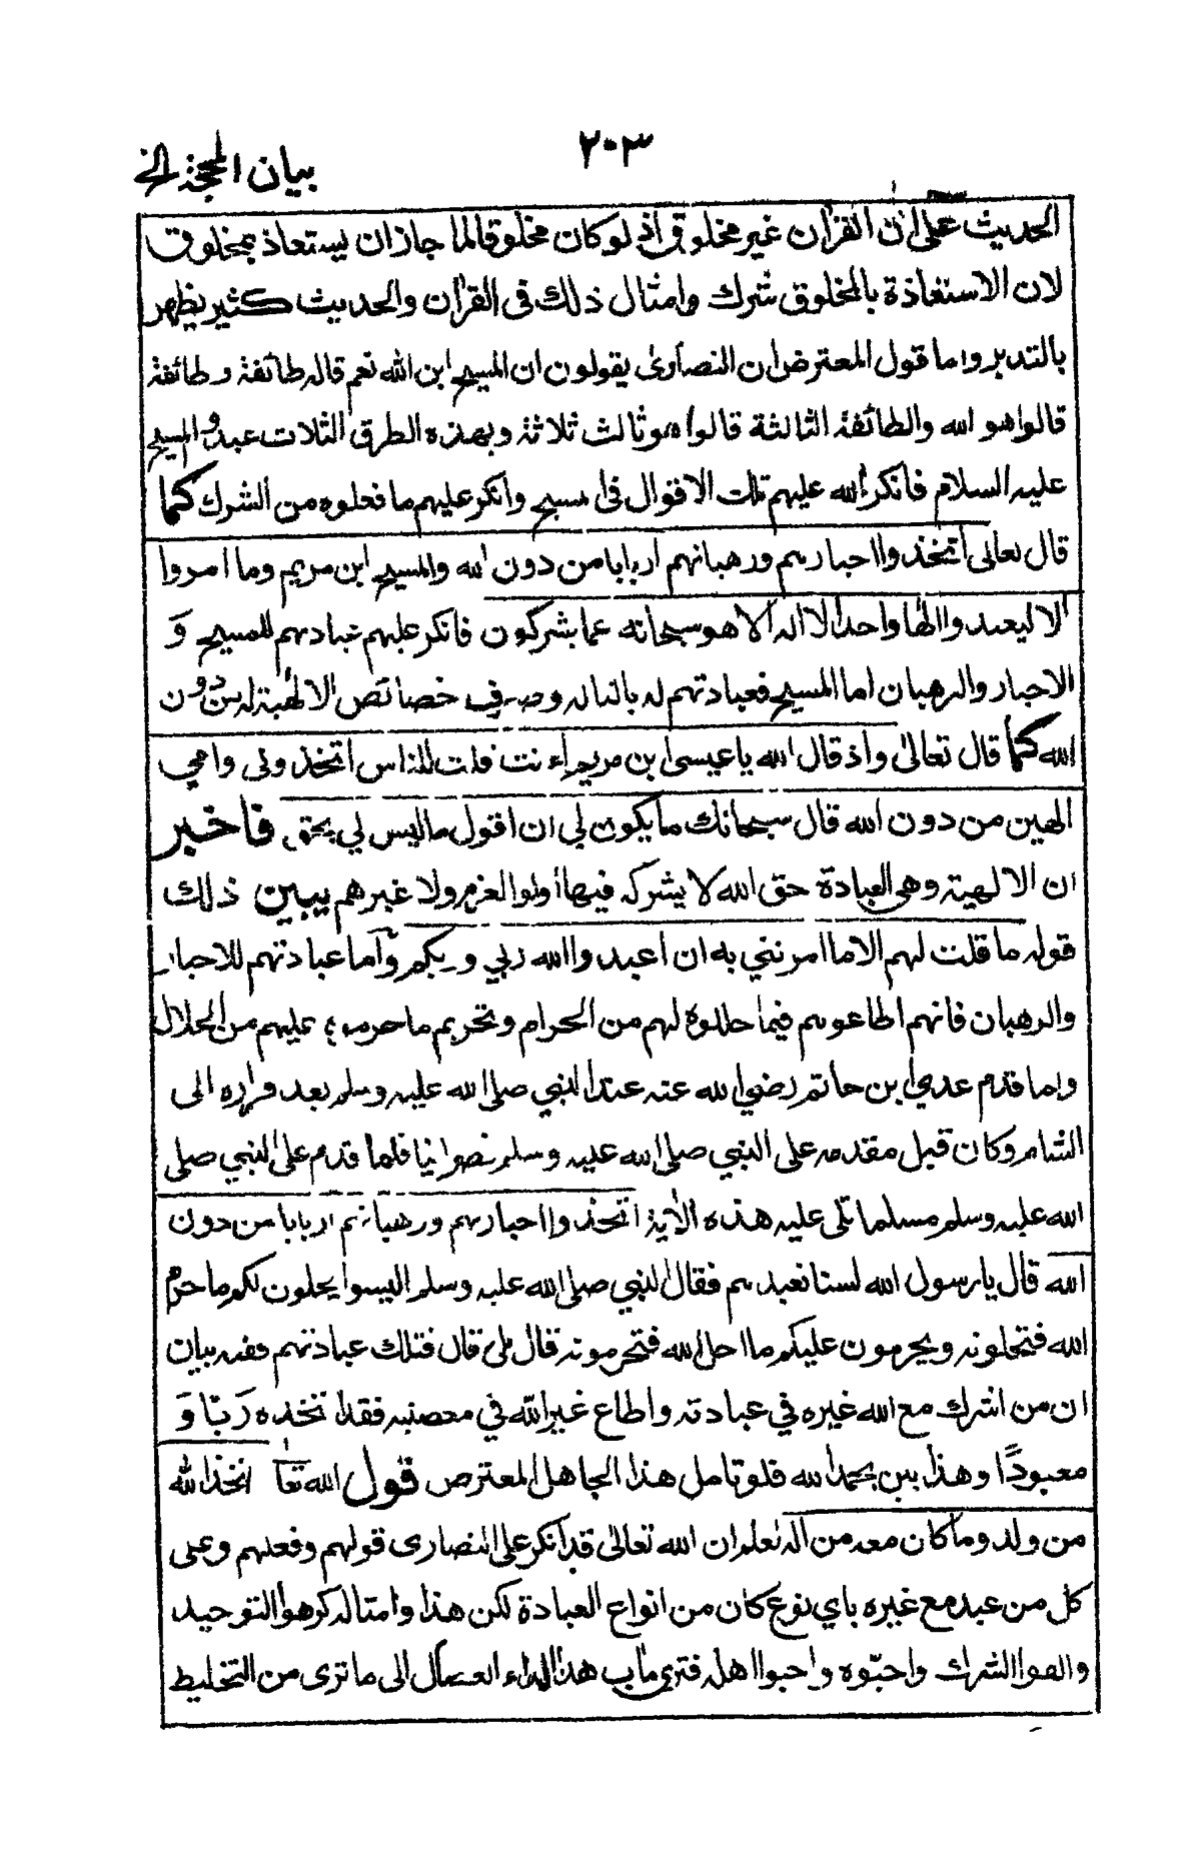 ٢٠٣
بيان المحجة الخ
الحديث على ان القرآن غير مخلوق اذ لو كان مخلوقا لما جاز ان يستعاذ بمخلوق
لان الاستعاذة بالمخلوق شرك وامثال ذلك فى القرآن والحديث كثير يظهر
بالتدبر واما قول المعترض ان النصارى يقولون ان المسيح ابن الله نعم قاله طائفة وطائفة
قالوا هو الله والطائفة الثالثة قالوا هو ثالث ثلاثة وبهذه الطرق الثلاث عبدوا المسيح
عليه السلام فانكر الله عليهم تلك الاقوال فى المسيح وانكر عليهم ما فعلوه من الشرك كما
قال تعالى اتخذوا احبارهم ورهبانهم اربابا من دون الله والمسيح ابن مريم وما امروا
الا ليعبدوا الها واحدا لا اله الا هو سبحانه عما يشركون فانكر عليهم عبادتهم للمسيح و
الاحبار والرهبان اما المسيح فعبادتهم له بالتاله وصرف خصائص الالهية له من دون
الله كما قال تعالى واذ قال الله يا عيسى ابن مريم اءنت قلت للناس اتخذونى وامي
الهين من دون الله قال سبحانك ما يكون لي ان اقول ما ليس لي بحق فاخبر
ان الالهية وهى العبادة حق الله لا يشركه فيها اولوا العزم ولا غيرهم يبين ذلك
قوله ما قلت لهم الا ما امرتني به ان اعبدوا الله ربي وربكم وأما عبادتهم للاحبار
والرهبان فانهم اطاعوهم فيما حللوه لهم من الحرام وتحريم ما حرموه عليهم من الحلال
ولما قدم عدي ابن حاتم رضي الله عنه عند النبي صلى الله عليه وسلم بعد فراره الى
الشام وكان قبل مقدمه على النبي صلى الله عليه وسلم نصرانيا فلما قدم على النبي صلى
الله عليه وسلم مسلما تلى عليه هذه الآية اتخذوا احبارهم ورهبانهم اربابا من دون
الله قال يا رسول الله لسنا نعبدهم فقال النبي صلى الله عليه وسلم اليسوا يحلون لكم ما حرم
الله فتحلونه ويحرمون عليكم ما احل الله فتحرمونه قال بلى قال فتلك عبادتهم ففيه بيان
ان من اشرك مع الله غيره في عبادته واطاع غير الله في معصيته فقد اتخذه رَبًّا وَ
معبودًا وهذا بين بحمد الله فلو تامل هذا الجاهل المعترض قول الله تعا ما اتخذ الله
من ولد وما كان معه من اله لعلم ان الله تعالى قد انكر على النصارى قولهم وفعلهم وعلى
كل من عبد مع غيره باي نوع كان من انواع العبادة لكن هذا وامثاله كرهوا التوحيد
والفوا الشرك واحبّوه واحبوا اهله فترى مآب هذا الداء العضال الى ما ترى من التخليط